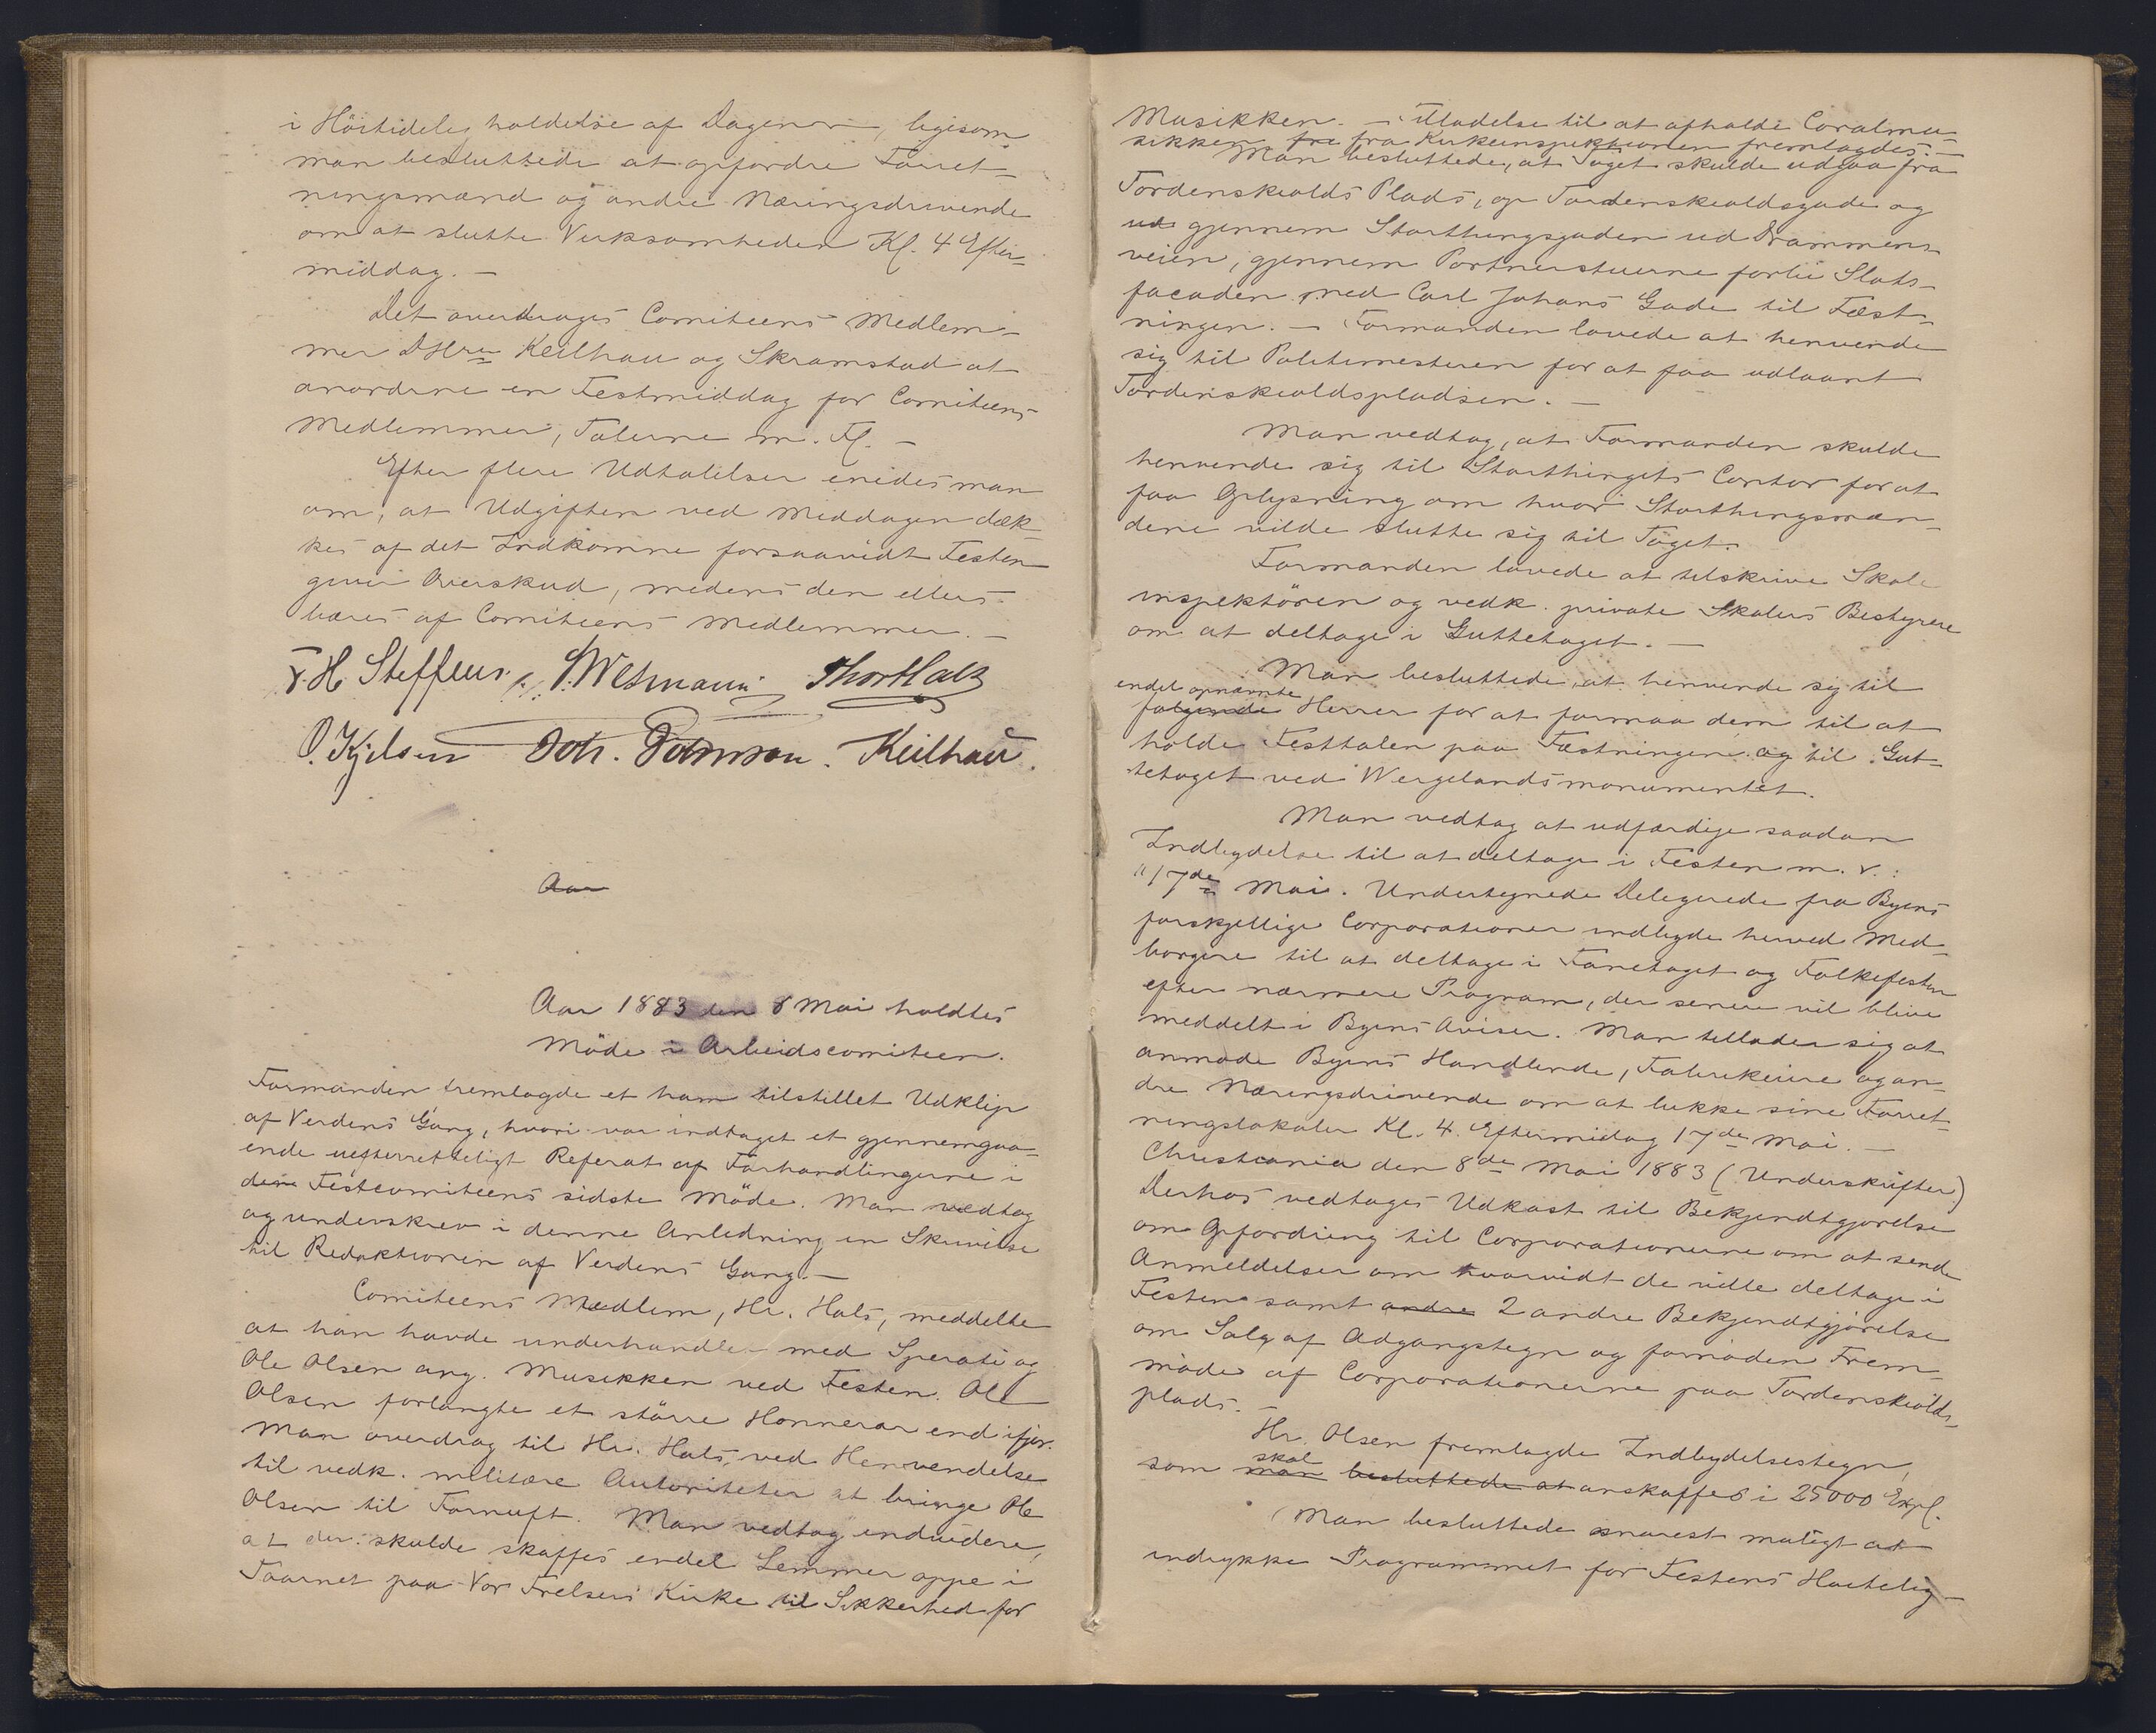 i Höitidelig holdelse af Dagen, ligesom
man besluttede at opfordre Forret-
ningsmænd og andre Næringsdrivende
om at slutte Virksomheden Kl. 4 Efter-
middag. —
Det overdroges Comiteens Medlem-
mer DHrr Keilhau og Skramstad at
anordne en Festmiddag for Comiteens
Medlemmer, Talerne m. Fl. —
Efter flere Udtalelser enedes man
om, at Udgiften ved Middagen dæk-
kes af det Indkomne forsaavidt Festen
giver Overskud, medens den ellers
bæres af Comiteens Medlemmer. —
F. H Steffens. Thor Hals
O. Kjelsen Joh. Keilhau.
Aar
Aar 1883 den 8 Mai holdtes
Möde i Arbeidscomiteen.
Formanden fremlagde et ham tilstillet Udklip
af Verdens Gang, hvori var indtaget et gjennemgaa-
ende uefterretteligt Referat af Forhandlingerne i
den Festcomiteens sidste Möde. Man vedtog
og underskrev i denne Anledning en Skrivelse
til Redaktionen af Verdens Gang. —
Comiteens Medlem, Hr. Hals, meddelte
at han havde underhandlet med Sperati og
Ole Olsen ang. Musikken ved Festen. Ole
Olsen forlangte et större Honnorar end ifjor.
Man overdrog til Hr. Hals, ved Henvendelse
til vedk. militære Autoriteter at bringe Ole
Olsen til Fornuft. Man vedtog endvidere,
at der skulde skaffes endel Lemmer oppe i
Taarnet paa Vor Frelsers Kirke til Sikkerhed for
Musikken. — Tilladelse til at afholde Coralmu-
sikken fra fra Kirkeinspektionen fremlagdes. —
Man besluttede, at Toget skulde udgaa fra
Tordenskiolds Plads, op Tordenskioldsgade og
ud gjennem Storthingsgaden ud Drammens-
veien, gjennem Portnerstuerne forbi Slots-
facaden ned Carl Johans Gade til Fæst-
ningen. — Formanden lovede at henvende
sig til Politimesteren for at faa udlaant
Tordenskioldspladsen. —
Man vedtog, at Formanden skulde
henvende sig til Storthingets Contor for at
faa Oplysning om hvor Storthingsmæn-
dene vilde slutte sig til Toget.
Formanden lovede at tilskrive Skole
inspektören og vedk. private Skolers Bestyrere
om at deltage i Guttetoget. —
Man besluttede at henvende sig til
endel opnævnte
fölgende Herrer for at formaa dem til at
holde Festtalen paa Fæstningen og til Gut-
tetoget ved Wergelandsmonumentet.
Man vedtog at udfærdige saadan
Indbydelse til at deltage i Festen m. v.:
"17de Mai. Undertegnede Delegerede fra Byens
forskjellige Corporationer indbyde herved Med-
borgere til at deltage i Fanetoget og Folkefesten
efter nærmere Program, der senere vil blive
meddelt i Byens Aviser. Man tillader sig at
anmode Byens Handlende, Fabrikeiere og an-
dre Næringsdrivende om at lukke sine Forret-
ningslokaler Kl. 4. Eftermidag 17de Mai. —
Christiania den 8de Mai 1883 (Underskrifter)
Derhos vedtoges Udkast til Bekjendtgjorelse
om Opfordring til Corporationerne om at sende
Anmeldelser om hvorvidt de ville deltage i
Festen samt andre 2 andre Bekjendtgjörelse
om Salg af Adgangstegn og fornöden Frem-
möde af Corporationerne paa Tordenskiolds-
plads. —
Hr. Olsen fremlagde Indbydelsestegn,
skal
som man besluttede at anskaffes i 25000 Expl.
Man besluttede snarest muligt at
indrykke Programmet for Festens Hoitelig-